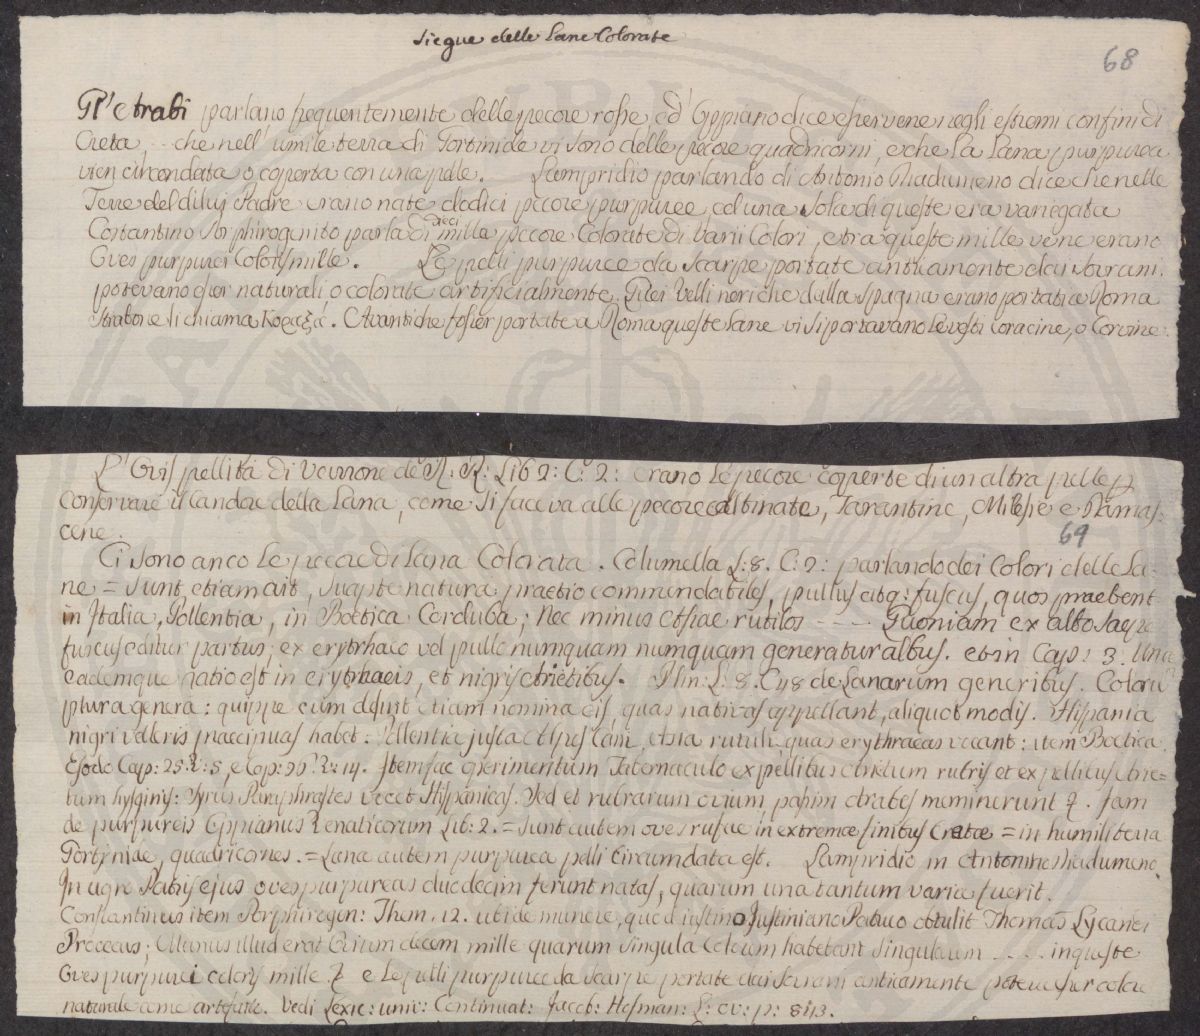 Siegue delle Lane Colorate
68
Gl'Arabi parlano frequentemente delle pecore rosse, ed Oppiano dice esservene negli estremi confini di
Creta, .. che nell'umile terra di Gortinide vi sono delle pecore quadricorni, e che la Lana purpurea
vien circondata o coperta con una pelle. Lampridio parlando di Antonio Diadumeno dice che nelle
Terre del di lui Padre erano nate dodici pecore purpuree, ed una sola di queste era variegata
Costantino Porphirogenito parla di dieci milla pecore Colorate di varii Colori, e tra queste mille vene erano
Oves purpurei Coloris mille. Le pelli purpuree da scarpe portate anticamente dai sovrani
potevano esser naturali o colorate artificialmente. Quei Velli neri che dalla Spagna erano portati a Roma
Strabone li chiama Κοραξά. Avanti che fosser portate a Roma queste Lane vi si portavano le vesti Coracine, o Corvine.
L'Ovis pellita di Verrone de R: R: Lib 2: C: 2: erano le pecore coperte di un altra pelle p
conservare il candore della Lana, come si faceva alle pecore Altinate, Tarantine, Milesie e Damas-
cene.
69
Ci sono anco le pecore di Lana Colorata. Columella L: 8. C: 2: parlando dei Colori delle La-
ne = sunt, etiam ait, suapte natura praetio commendabiles, pullus atq: fuscus, quos praebent
in Italia, Pollentia, in Boetica Corduba; Nec minus Asiae rutilos ---- Quoniam ex albo saepe
fuscus editur partus; ex erythraeo vel pullo numquam numquam generatur albus. et in Cap: 3. Una
eademque ratio est in erythraeis, et nigris Arietibus. Plin: L: 8. C 48 de Lanarum generibus. Coloru
plura genera: quippe cum desint etiam nomina eis, quas nativas appellant, aliquot modis. Hispania
nigri velleris praecipuas habet: Pollentia juxta Alpes Cani, Asia rutuli, quas erythraeas vocant: item Boetica
Esodo Cap: 25. v: 5, e Cap: 36. v: 14. Item fac operimentum Tabernaculo ex pellibus Arietum rubris et ex pellibus Arie-
tum hysginis: Syrus Paraphrastes vocat Hispanicas. Sed et rubrarum ovium, passim Arabes meminerunt &. Jam
de purpureis Oppianus Venaticorum Lib: 2. = sunt autem oves rufae in extremae finibus Cretae = in humili terra
Gortyniae, quadricornes. = Lana autem purpurea pelli Circumdata est. Lampridio in Antonino Diadumeno
In agro Patris ejus oves purpureas duodecim ferunt natas, quarum una tantum varia fuerit.
Constantinus item Porphirogen: Them. 12. ubi de munere, quod iustino Justiniano Patruo obtulit Thomas Lycanei
Proceeus; Munus illud erat Ovium decem mille quarum singula Colorum habebant singulorum ---- in queste
Oves purpurei coloris mille & e Le pelli purpuree da scarpe portate dai Sovrani anticamente poteva esser colore
naturale come artefatto. Vedi Lexic: univ: Continuat: Jacob: Hofman: L: ov: p: 843.